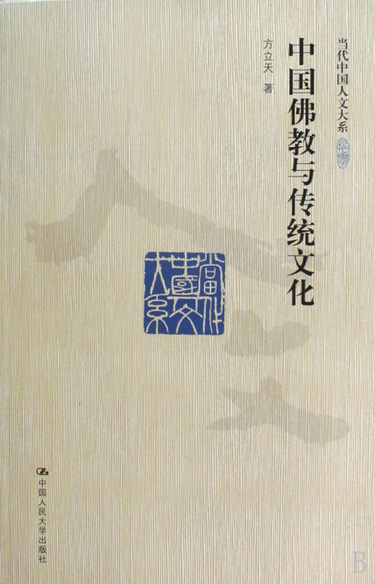 当代中国人文大系
中国佛教与传统文化
方立天 著
當代
中國人文
大系
人文
中国人民大学出版社
B